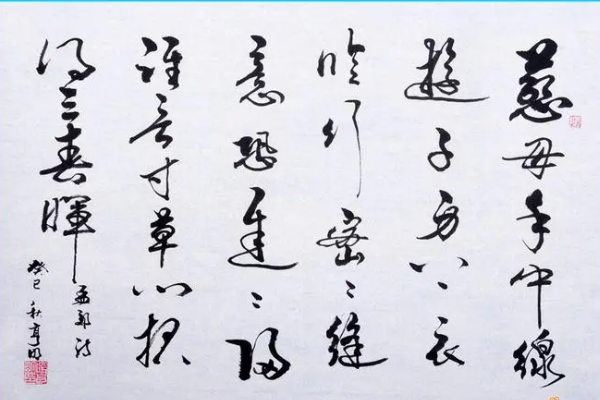 慈母手中線
遊子身上衣
臨行密〻縫
意恐遲〻歸
誰言寸草心報
得三春暉
孟郊詩
癸巳秋亨明